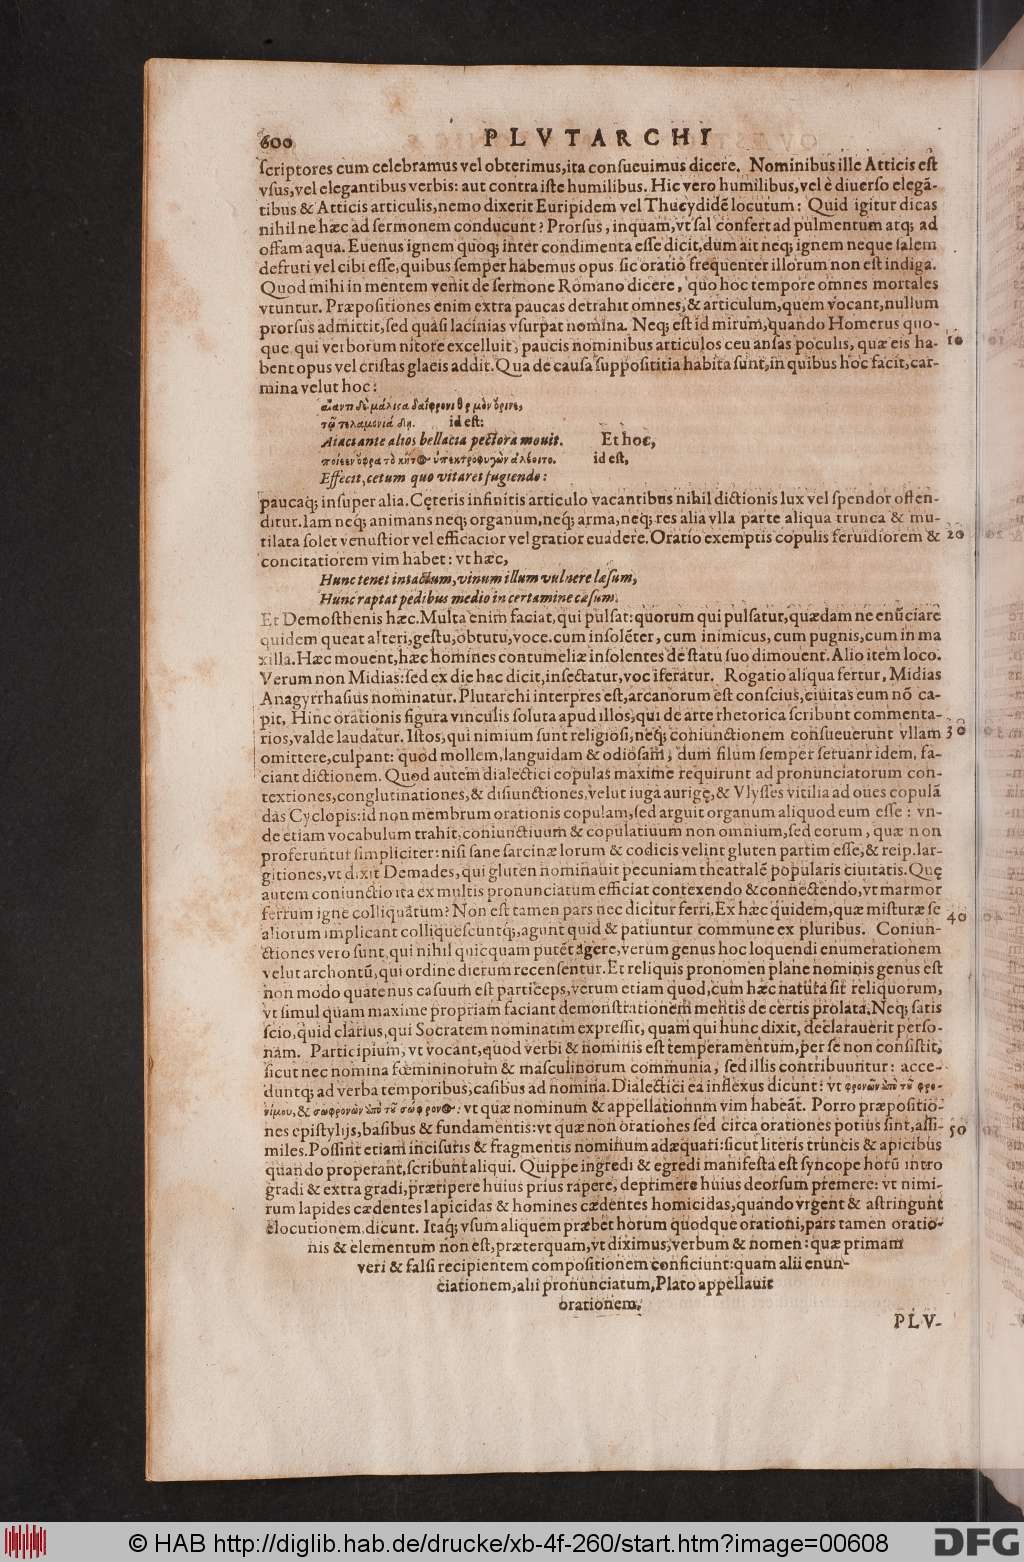 600 PLVTARCHI
scriptores cum celebramus vel obterimus, ita consueuimus dicere. Nominibus ille Atticis est
vsus, vel elegantibus verbis: aut contra iste humilibus. Hic vero humilibus, vel è diuerso elegã-
tibus & Atticis articulis, nemo dixerit Euripidem vel Thucydidẽ locutum: Quid igitur dicas
nihil ne hæc ad sermonem conducunt? Prorsus, inquam, vt sal confert ad pulmentum atq; ad
offam aqua. Euenus ignem quoq; inter condimenta esse dicit, dum ait neq; ignem neque salem
defruti vel cibi esse, quibus semper habemus opus sic oratio frequenter illorum non est indiga.
Quod mihi in mentem venit de sermone Romano dicere, quo hoc tempore omnes mortales
vtuntur. Præpositiones enim extra paucas detrahit omnes, & articulum, quem vocant, nullum
prorsus admittit, sed quasi lacinias vsurpat nomina. Neq; est id mirum, quando Homerus quo-
que qui verborum nitore excelluit, paucis nominibus articulos ceu ansas poculis, quæ eis ha- 10
bent opus vel cristas glaeis addit. Qua de causa supposititia habita sunt, in quibus hoc facit, car-
mina velut hoc:
αἴαντι δὲ μάλιϛα δαΐφρονι θυμὸν ὄρινε,
τῷ τελαμονιάδῃ. id est:
Aiaci ante alios bellacia pectora mouit. Et hoc,
ποίεεν ὄφρα τὸ κῆτος ὑπεκπροφυγὼν ἀλέοιτο. id est,
Effecit, cetum quo vitaret fugiendo:
paucaq; insuper alia. Cęteris infinitis articulo vacantibus nihil dictionis lux vel spendor offen-
ditur. Iam neq; animans neq; organum, neq; arma, neq; res alia vlla parte aliqua trunca & mu-
tilata solet venustior vel efficacior vel gratior euadere. Oratio exemptis copulis feruidiorem & 20
concitatiorem vim habet: vt hæc,
Hunc tenet intactum, vinum illum vulnere læsum,
Hunc raptat pedibus medio in certamine cæsum.
Et Demosthenis hæc. Multa enim faciat, qui pulsat: quorum qui pulsatur, quædam ne enũciare
quidem queat alteri, gestu, obtutu, voce. cum insolẽter, cum inimicus, cum pugnis, cum in ma
xilla. Hæc mouent, hæc homines contumeliæ insolentes de statu suo dimouent. Alio item loco.
Verum non Midias: sed ex die hac dicit, insectatur, vociferatur. Rogatio aliqua fertur, Midias
Anagyrrhasius nominatur. Plutarchi interpres est, arcanorum est conscius, ciuitas eum nõ ca-
pit, Hinc orationis figura vinculis soluta apud illos, qui de arte rhetorica scribunt commenta-
rios, valde laudatur. Istos, qui nimium sunt religiosi, neq; coniunctionem consueuerunt vllam 30
omittere, culpant: quod mollem, languidam & odiosam, dum filum semper seruant idem, fa-
ciant dictionem. Quod autem dialectici copulas maxime requirunt ad pronunciatorum con-
textiones, conglutinationes, & disiunctiones, velut iuga aurigę, & Vlysses vitilia ad oues copulã
das Cyclopis: id non membrum orationis copulam, sed arguit organum aliquod eum esse: vn-
de etiam vocabulum trahit, coniunctiuum & copulatiuum non omnium, sed eorum, quæ non
proferuntur simpliciter: nisi sane sarcinæ lorum & codicis velint gluten partim esse, & reip. lar-
gitiones, vt dixit Demades, qui gluten nominauit pecuniam theatralẽ popularis ciuitatis. Quę
autem coniunctio ita ex multis pronunciatum efficiat contexendo & connectendo, vt marmor
ferrum igne colliquatum? Non est tamen pars nec dicitur ferri. Ex hæc quidem, quæ misturæ se 40
aliorum implicant colliquescuntq;, agunt quid & patiuntur commune ex pluribus. Coniun-
ctiones vero sunt qui nihil quicquam putẽt agere, verum genus hoc loquendi enumerationem
velut archontũ, qui ordine dierum recensentur. Et reliquis pronomen plane nominis genus est
non modo quatenus casuum est particeps, verum etiam quod, cum hæc natura sit reliquorum,
vt simul quam maxime propriam faciant demonstrationem mentis de certis prolata. Neq; satis
scio, quid clarius, qui Socratem nominatim expressit, quam qui hunc dixit, declarauerit perso-
nam. Participium, vt vocant, quod verbi & nominis est temperamentum, per se non consistit,
sicut nec nomina fœmininorum & masculinorum communia, sed illis contribuuntur: acce-
duntq; ad verba temporibus, casibus ad nomina. Dialectici ea inflexus dicunt: vt φρονῶν ἀπὸ τοῦ φρο-
νίμου, & σωφρονῶν ἀπὸ τοῦ σώφρονος: vt quæ nominum & appellationum vim habeãt. Porro præpositio-
nes epistylijs, basibus & fundamentis: vt quæ non orationes sed circa orationes potius sint, assi- 50
miles. Possint etiam incisuris & fragmentis nominum adæquari: sicut literis truncis & apicibus
quando properant, scribunt aliqui. Quippe ingredi & egredi manifesta est syncope horũ intro
gradi & extra gradi, præripere huius prius rapere, deprimere huius deorsum premere: vt nimi-
rum lapides cædentes lapicidas & homines cædentes homicidas, quando vrgent & astringunt
elocutionem, dicunt. Itaq; vsum aliquem præbet horum quodque orationi, pars tamen oratio-
nis & elementum non est, præterquam, vt diximus, verbum & nomen: quæ primam
veri & falsi recipientem compositionem conficiunt: quam alii enun-
ciationem, alii pronunciatum, Plato appellauit
orationem.
PLV-
© HAB http://diglib.hab.de/drucke/xb-4f-260/start.htm?image=00608
DFG